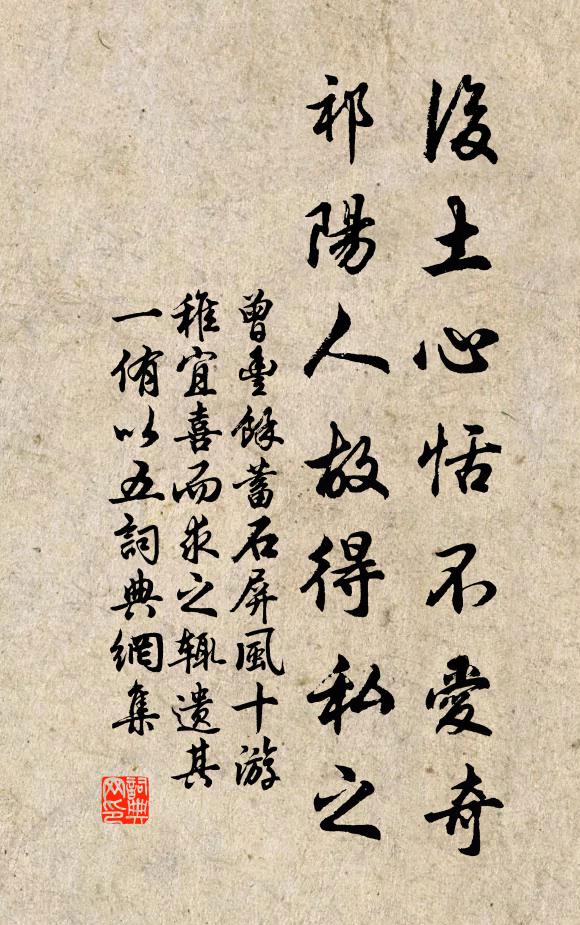 後土心恬不愛奇
祁陽人故得私之
曾豐餘蓄石屏風十游
稚宜喜而求之輒遺其
一侑以五詞典網集
詞典
网印